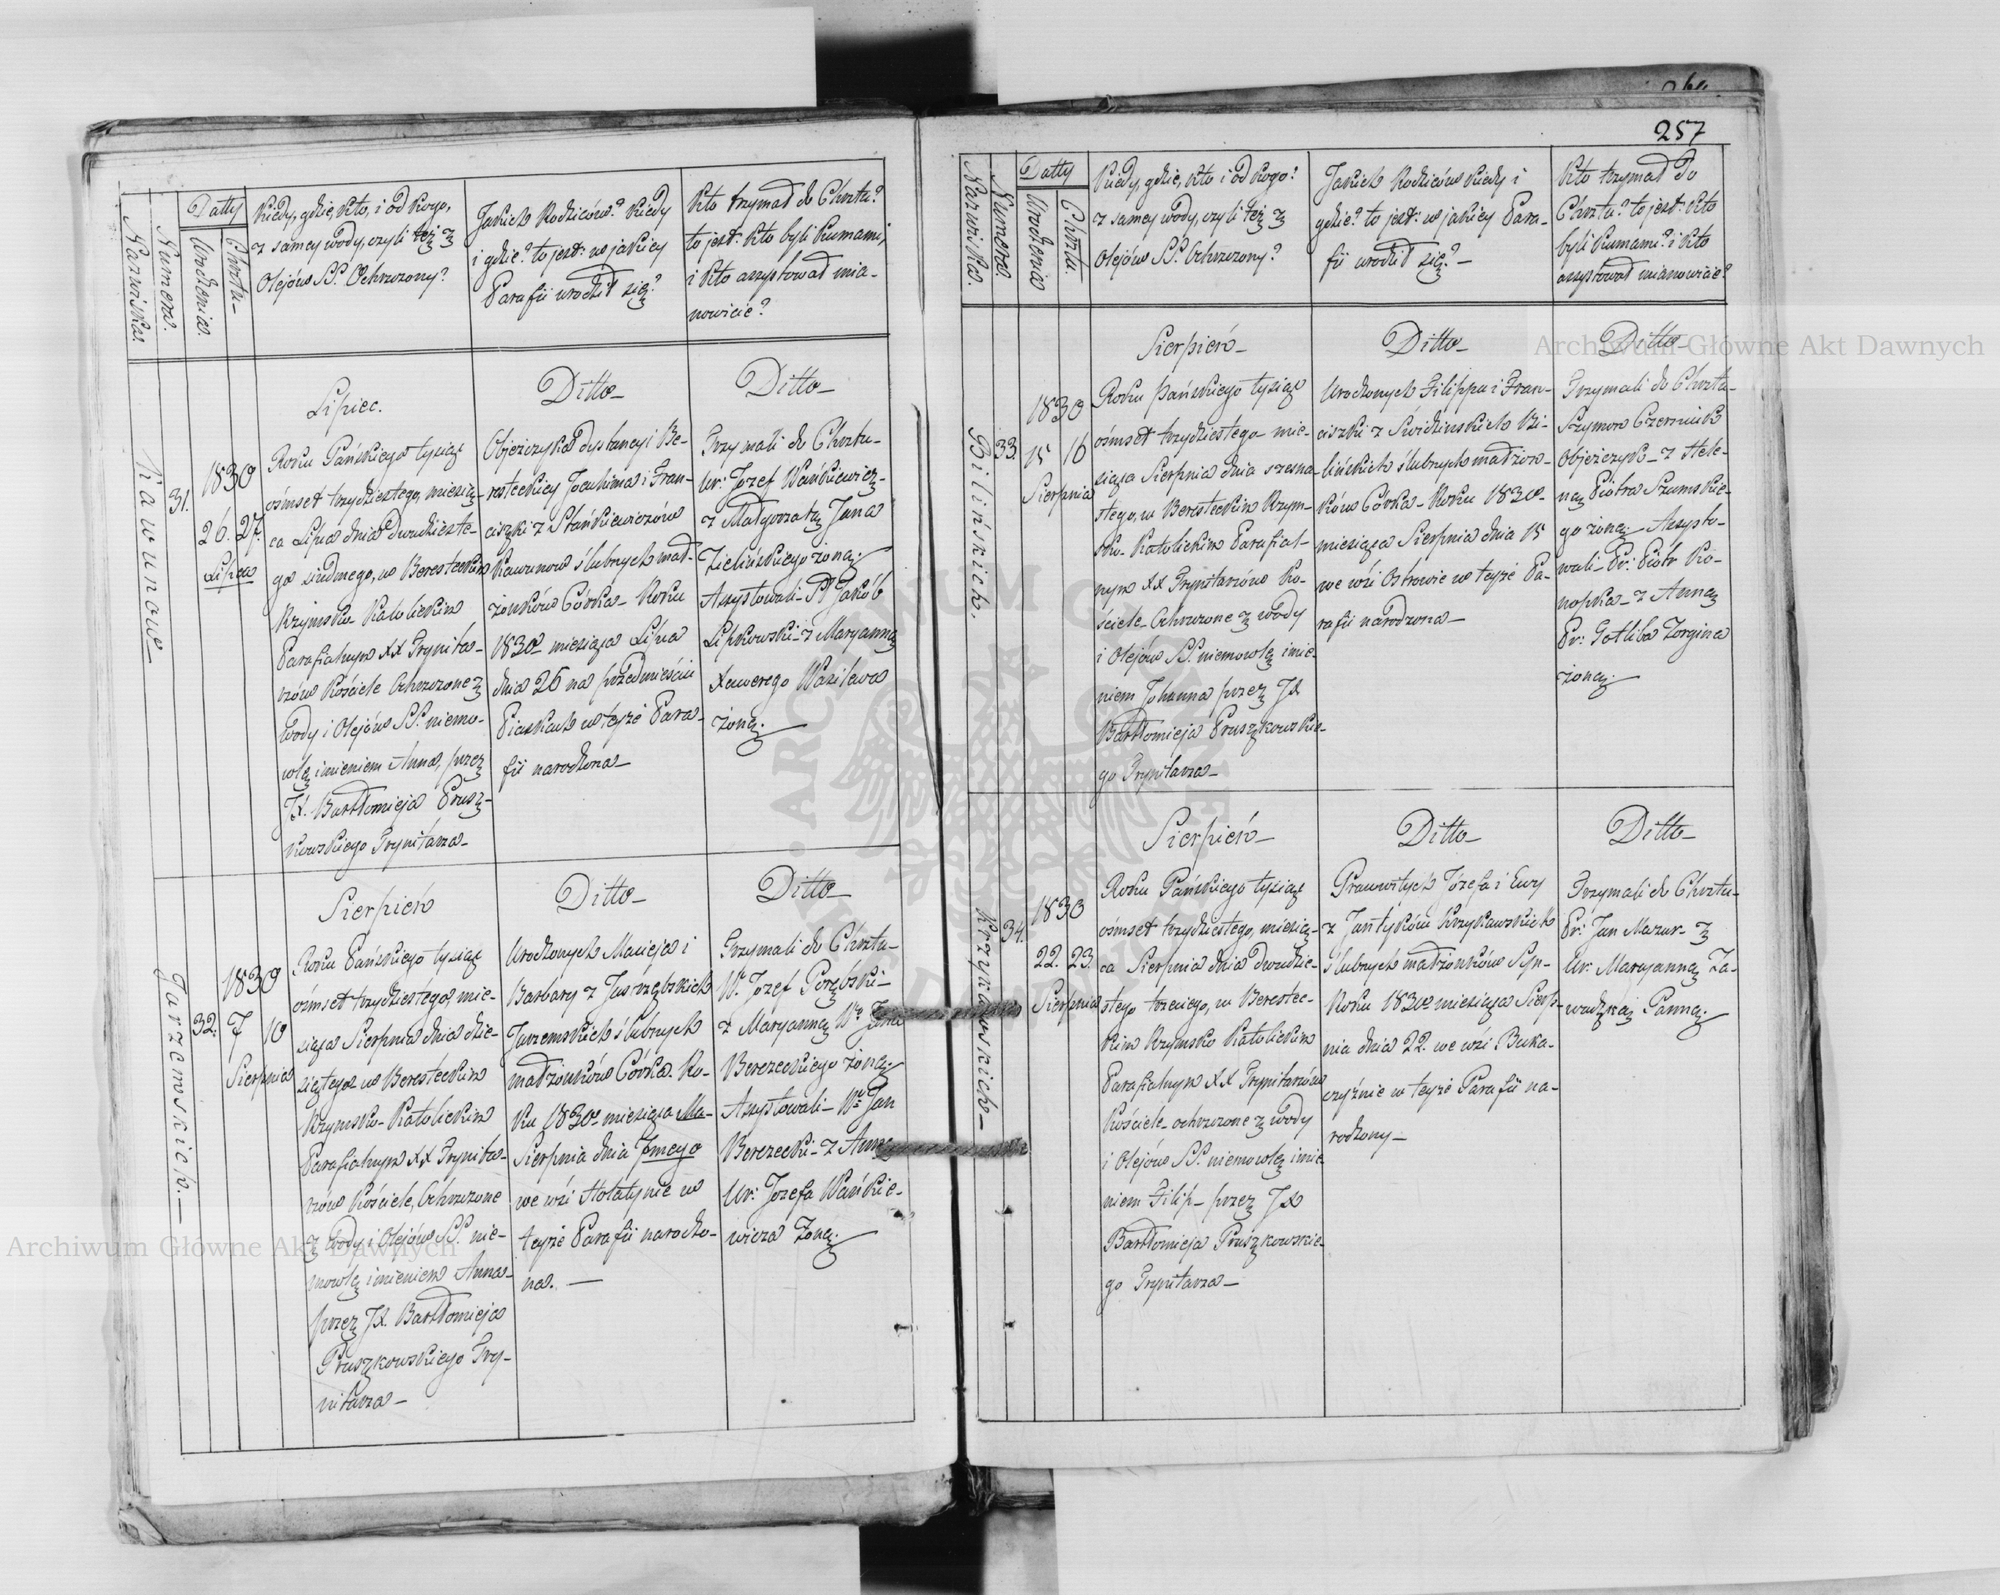 257
Datty
Nazwiska.
Numera.
Urodzenia.
Chrztu-
Kiedy, gdzie, kto, i od kogo,
z samey wody, czyli też z
Olejów SS. Ochrzczony?
Jakich Rodziców? kiedy
i gdzie? to jest: w jakiey
Parafii urodził się?
Kto trzymał do Chrztu?
to jest: kto byli Kumami,
i kto assystował mia-
nowicie?
Kawunow-
31.
1830
26. 27.
Lipca
Lipiec.
Roku Pańskiego tysiąc
ośmset trzydziestego, miesią-
ca Lipca dnia dwudzieste-
go siódmego, w Beresteckim
Rzymsko Katolickim
Parafialnym XX Trynita-
rzów Kościele Ochrzczone z
Wody i Olejów SS. niemo-
wlę imieniem Anna, przez
JX. Bartłomieja Prusz-
kowskiego Trynitarza-
Ditto-
Objeżczyka dystancyi Be-
resteckiey Joachima i Fran-
ciszki z Stańkiewiczów
Kawunow ślubnych mał-
żonków Córka- Roku
1830 miesiąca Lipca
dnia 26 na przedmieściu
Piaskach w teyże Para-
fii narodzona-
Ditto-
Trzymali do Chrztu-
Ur: Jozef Wańkiewicz-
z Małgorzatą Jana
Zielińskiego żoną;
Assystowali- P. Jakób
Lipkowski- z Maryanną
Xawerego Wasilewa
żoną.
Jarzemskich.-
32.
1830
7 10
Sierpnia
Sierpień
Roku Pańskiego tysiąc
ośmset trzydziestego mie-
siąca Sierpnia dnia dzie-
siątego w Beresteckim
Rzymsko-Katolickim
Parafialnym XX Trynita-
rzów Kościele, Ochrzczone
z Wody i Olejów SS. nie-
mowlę imieniem Anna-
przez JX. Bartłomieja
Pruszkowskiego Try-
nitarza-
Ditto-
Urodzonych Macieja i
Barbary z Jastrzębskich
Jarzemskich ślubnych
małżonków Córka. Ro-
ku 1830 miesiąca Ma-
Sierpnia dnia 7mego
we wsi Hołatynie w
teyże Parafii narodzo-
na.-
Ditto-
Trzymali do Chrztu-
W. Jozef Porębski-
z Maryanną Wo Jana
Berezeckiego żoną;
Assystowali- Wny Jan
Berezecki- z Anną
Ur: Jozefa Wańkie-
wicza Żoną.
Datty
Nazwiska.
Numera.
Urodzenia
Chrztu.
Kiedy, gdzie, kto i od kogo?
z samey wody, czyli też z
Olejów SS. Ochrzczony?
Jakich Rodziców kiedy i
gdzie? to jest: w jakiey Para-
fii urodził się?-
Kto trzymał do
Chrztu? to jest: kto
byli Kumami? i kto
assystował mianowicie?
Bilińskich.
33.
1830
15 16
Sierpnia
Sierpień-
Roku Pańskiego tysiąc
ośmset trzydziestego mie-
siąca Sierpnia dnia szesna-
stego, w Beresteckim Rzym-
sko-Katolickim Parafial-
nym XX Trynitarzów Ko-
ściele- Ochrzczone z Wody
i Olejów SS. niemowlę imie-
niem Johanna przez JX
Bartłomieja Pruszkowskie-
go Trynitarza-
Ditto-
Urodzonych Filippa i Fran-
ciszki z Świdzińskich Bi-
lińskich ślubnych małżon-
ków Córka- Roku 1830-
miesiąca Sierpnia dnia 15
we wsi Ostrowie w teyże Pa-
rafii narodzona-
Ditto-
Trzymali do Chrztu-
Szymon Czerniuk
Objeżczyk- z Hele-
ną Piotra Szumskie-
go żoną; Assysto-
wali- Pr: Piotr Ko-
nopka- z Anną
Pr: Gotliba Zorgina
żoną.
Krzykawskich-
34.
1830
22. 23.
Sierpnia
Sierpień-
Roku Pańskiego tysiąc
ośmset trzydziestego, miesią-
ca Sierpnia dnia dwudzie-
stego trzeciego, w Berestec-
kim Rzymsko Katolickim
Parafialnym XX Trynitarzów
Kościele- ochrzczone z Wody
i Olejów SS. niemowlę imie-
niem Filip- przez JX
Bartłomieja Pruszkowskie-
go Trynitarza-
Ditto-
Pracowitych Józefa i Ewy
z Jantyków Krzykawskich
ślubnych małżonków Syn-
Roku 1830 miesiąca Sierp-
nia dnia 22. we wsi Buka-
czyźnie w teyże Parafii na-
rodzony-
Ditto-
Trzymali do Chrztu-
Pr: Jan Mazur- z
Ur: Maryanną Za-
wadzką Panną.
Archiwum Główne Akt Dawnych
Archiwum Główne Akt Dawnych